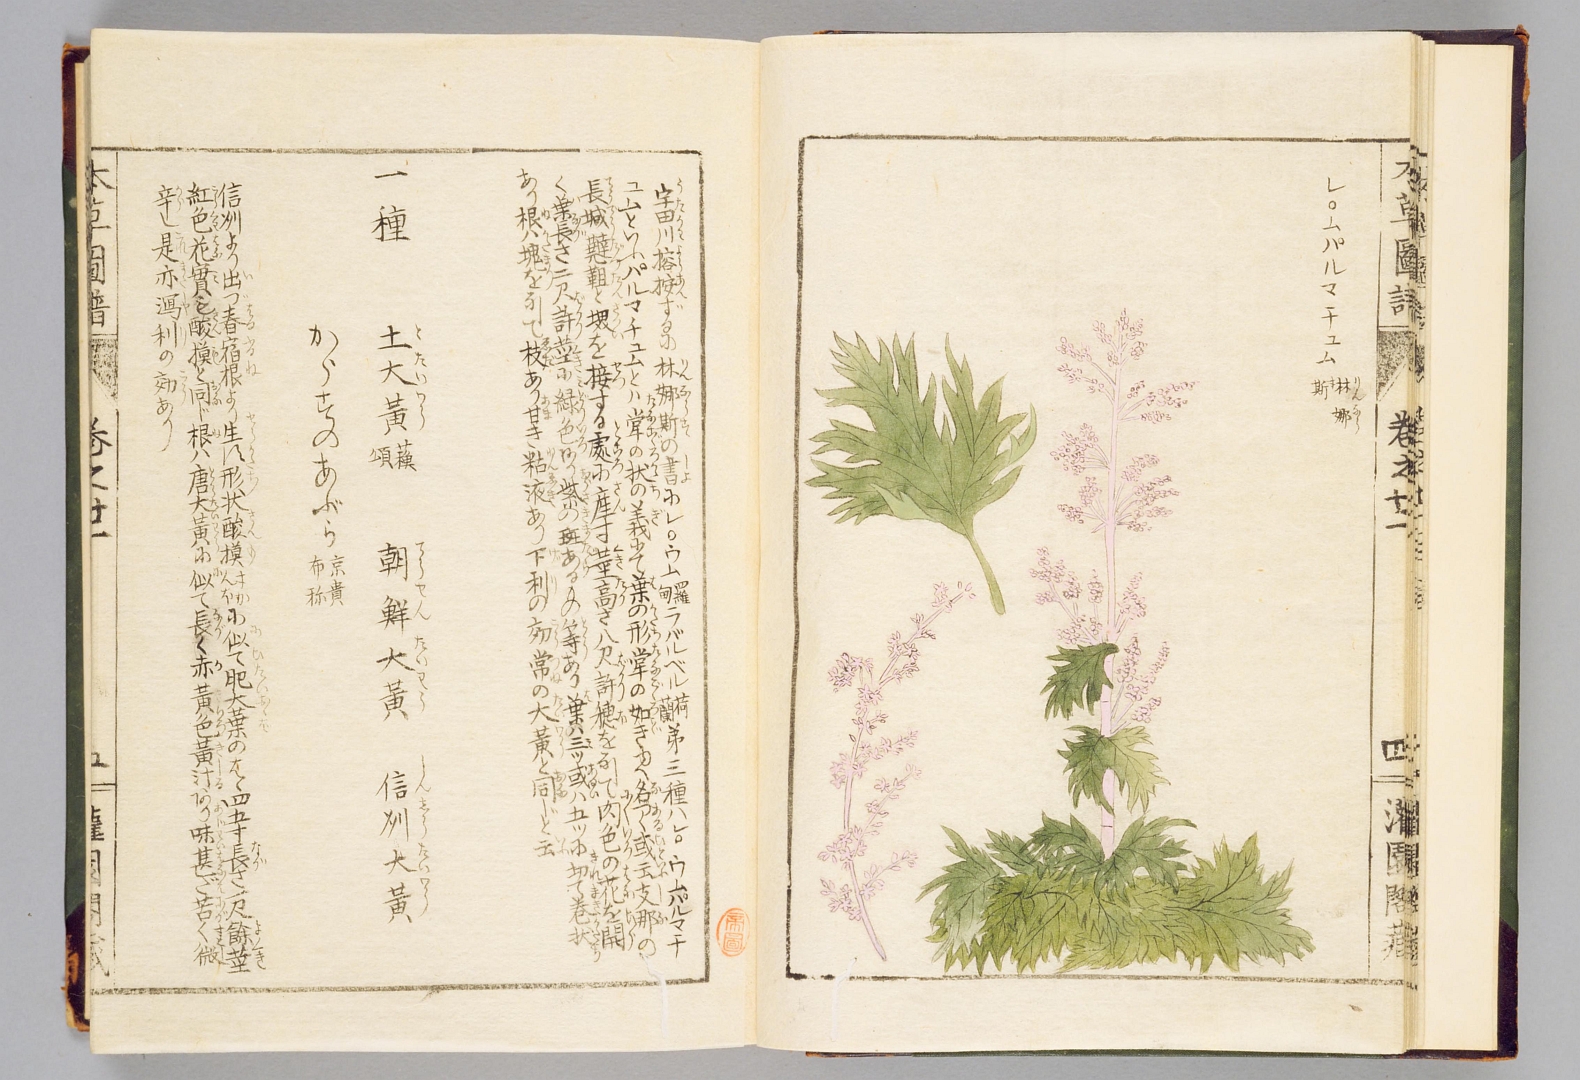 レウムパルマチュム 林娜斯
本草圖譜
卷之廿一
四
宇田川榕按するに林娜斯の書にレウム羅甸ラバルベル荷蘭第三種ハレウムパルマチ
ユムといふパルマチュムとハ掌の状の義にて葉の形掌の如きゆへ名アく或云支那の
長城韃靼と堺を接する處に産す莖高さ八尺許穂を引て肉色の花を開
く葉長さ二尺許莖に緑色あり紫の斑あるもの等あり葉ハ三ツ或ハ五ツに切て巻状
あり根ハ塊を引て枝あり甘き粘液あり下利の効常の大黄と同じと云
一種 土大黄蘓頌 朝鮮大黄 信州大黄
からすのあぶら 京貴布称
信州より出つ春宿根より生ず形状酸摸に似て肥大葉のさ四五寸長さ尺餘莖
紅色花實も酸摸と同じ根ハ唐大黄に似て長く赤黄色黄汁あり味甚だ苦く微
辛し是亦瀉利の効あり
本草圖譜
卷之廿一
五